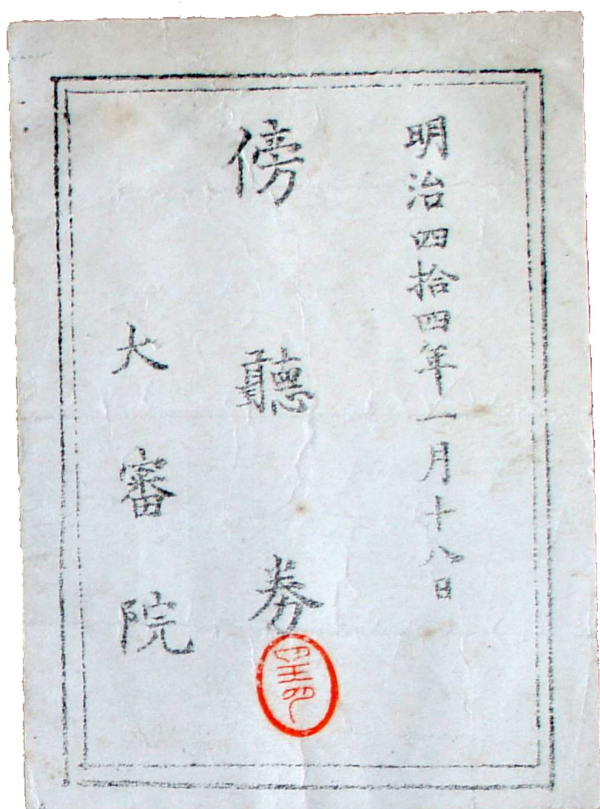 明治四拾四年一月十八日
傍聽券
大審院